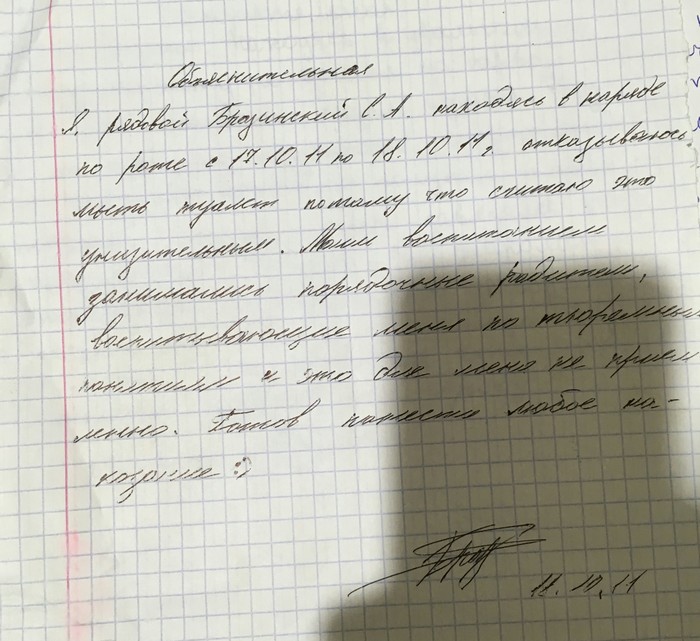 Объяснительная
Я, рядовой Бразинский С. А. находясь в наряде
по роте с 17.10.11 по 18.10.11г. отказываюсь
мыть туалет потому что считаю это
унизительным. Моим воспитанием
занимались порядочные родители,
воспитывающие меня по тюремным
понятиям и это для меня не прием
лемо. Готов понести любое на-
казание :)